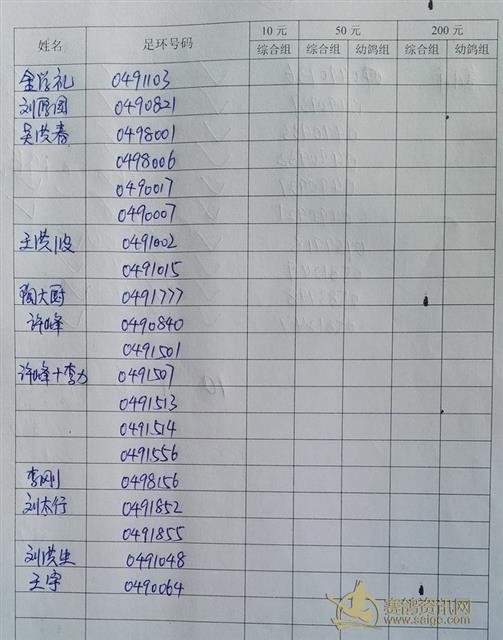 姓名 足环号码 10 元 50 元 200 元
综合组 综合组 幼鸽组 综合组 幼鸽组
金学礼 0491103
刘丽国 0490821
吴洪春 0498001
0498006
0490017
0490007
王洪波 0491002
0491015
陶大厨 0491777
许峰 0490840
0491501
许峰+李力 0491507
0491513
0491514
0491556
李刚 0498156
刘太行 0491852
0491855
刘洪生 0491048
王宇 0490064
赛鸽资讯网
www.saige.com